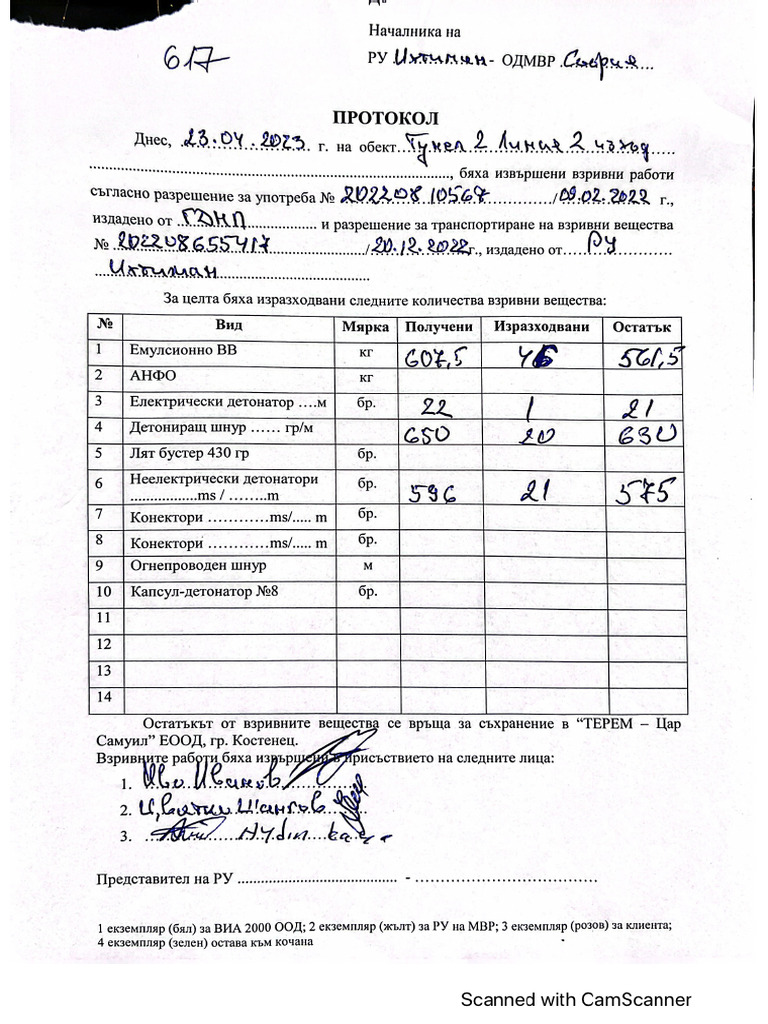 До
Началника на
617
РУ Ихтиман - ОДМВР София
ПРОТОКОЛ
Днес, 23.04.2023 г. на обект Тунел 2 Линия 2 чъход
, бяха извършени взривни работи
съгласно разрешение за употреба № 202208.10567 / 09.02.2022 г.,
издадено от ГДНП и разрешение за транспортиране на взривни вещества
№ 202208655417 / 20.12.2022 г., издадено от РУ
Ихтиман
За целта бяха изразходвани следните количества взривни вещества:
№ Вид Мярка Получени Изразходвани Остатък
1 Емулсионно ВВ кг 607,5 46 561,5
2 АНФО кг
3 Електрически детонатор ….м бр. 22 1 21
4 Детониращ шнур …… гр/м 650 20 630
5 Лят бустер 430 гр бр.
6 Неелектрически детонатори бр. 596 21 575
..................ms / ……..m
7 Конектори …………ms/..... m бр.
8 Конектори …………ms/..... m бр.
9 Огнепроводен шнур м
10 Капсул-детонатор №8 бр.
11
12
13
14
Остатъкът от взривните вещества се връща за съхранение в “ТЕРЕМ – Цар
Самуил” ЕООД, гр. Костенец.
Взривните работи бяха извършени в присъствието на следните лица:
1. Иво Иванов
2. Цветин Шангов
3. Aydin
Представител на РУ ........................................ - ……………………………
1 екземпляр (бял) за ВИА 2000 ООД; 2 екземпляр (жълт) за РУ на МВР; 3 екземпляр (розов) за клиента;
4 екземпляр (зелен) остава към кочана
Scanned with CamScanner